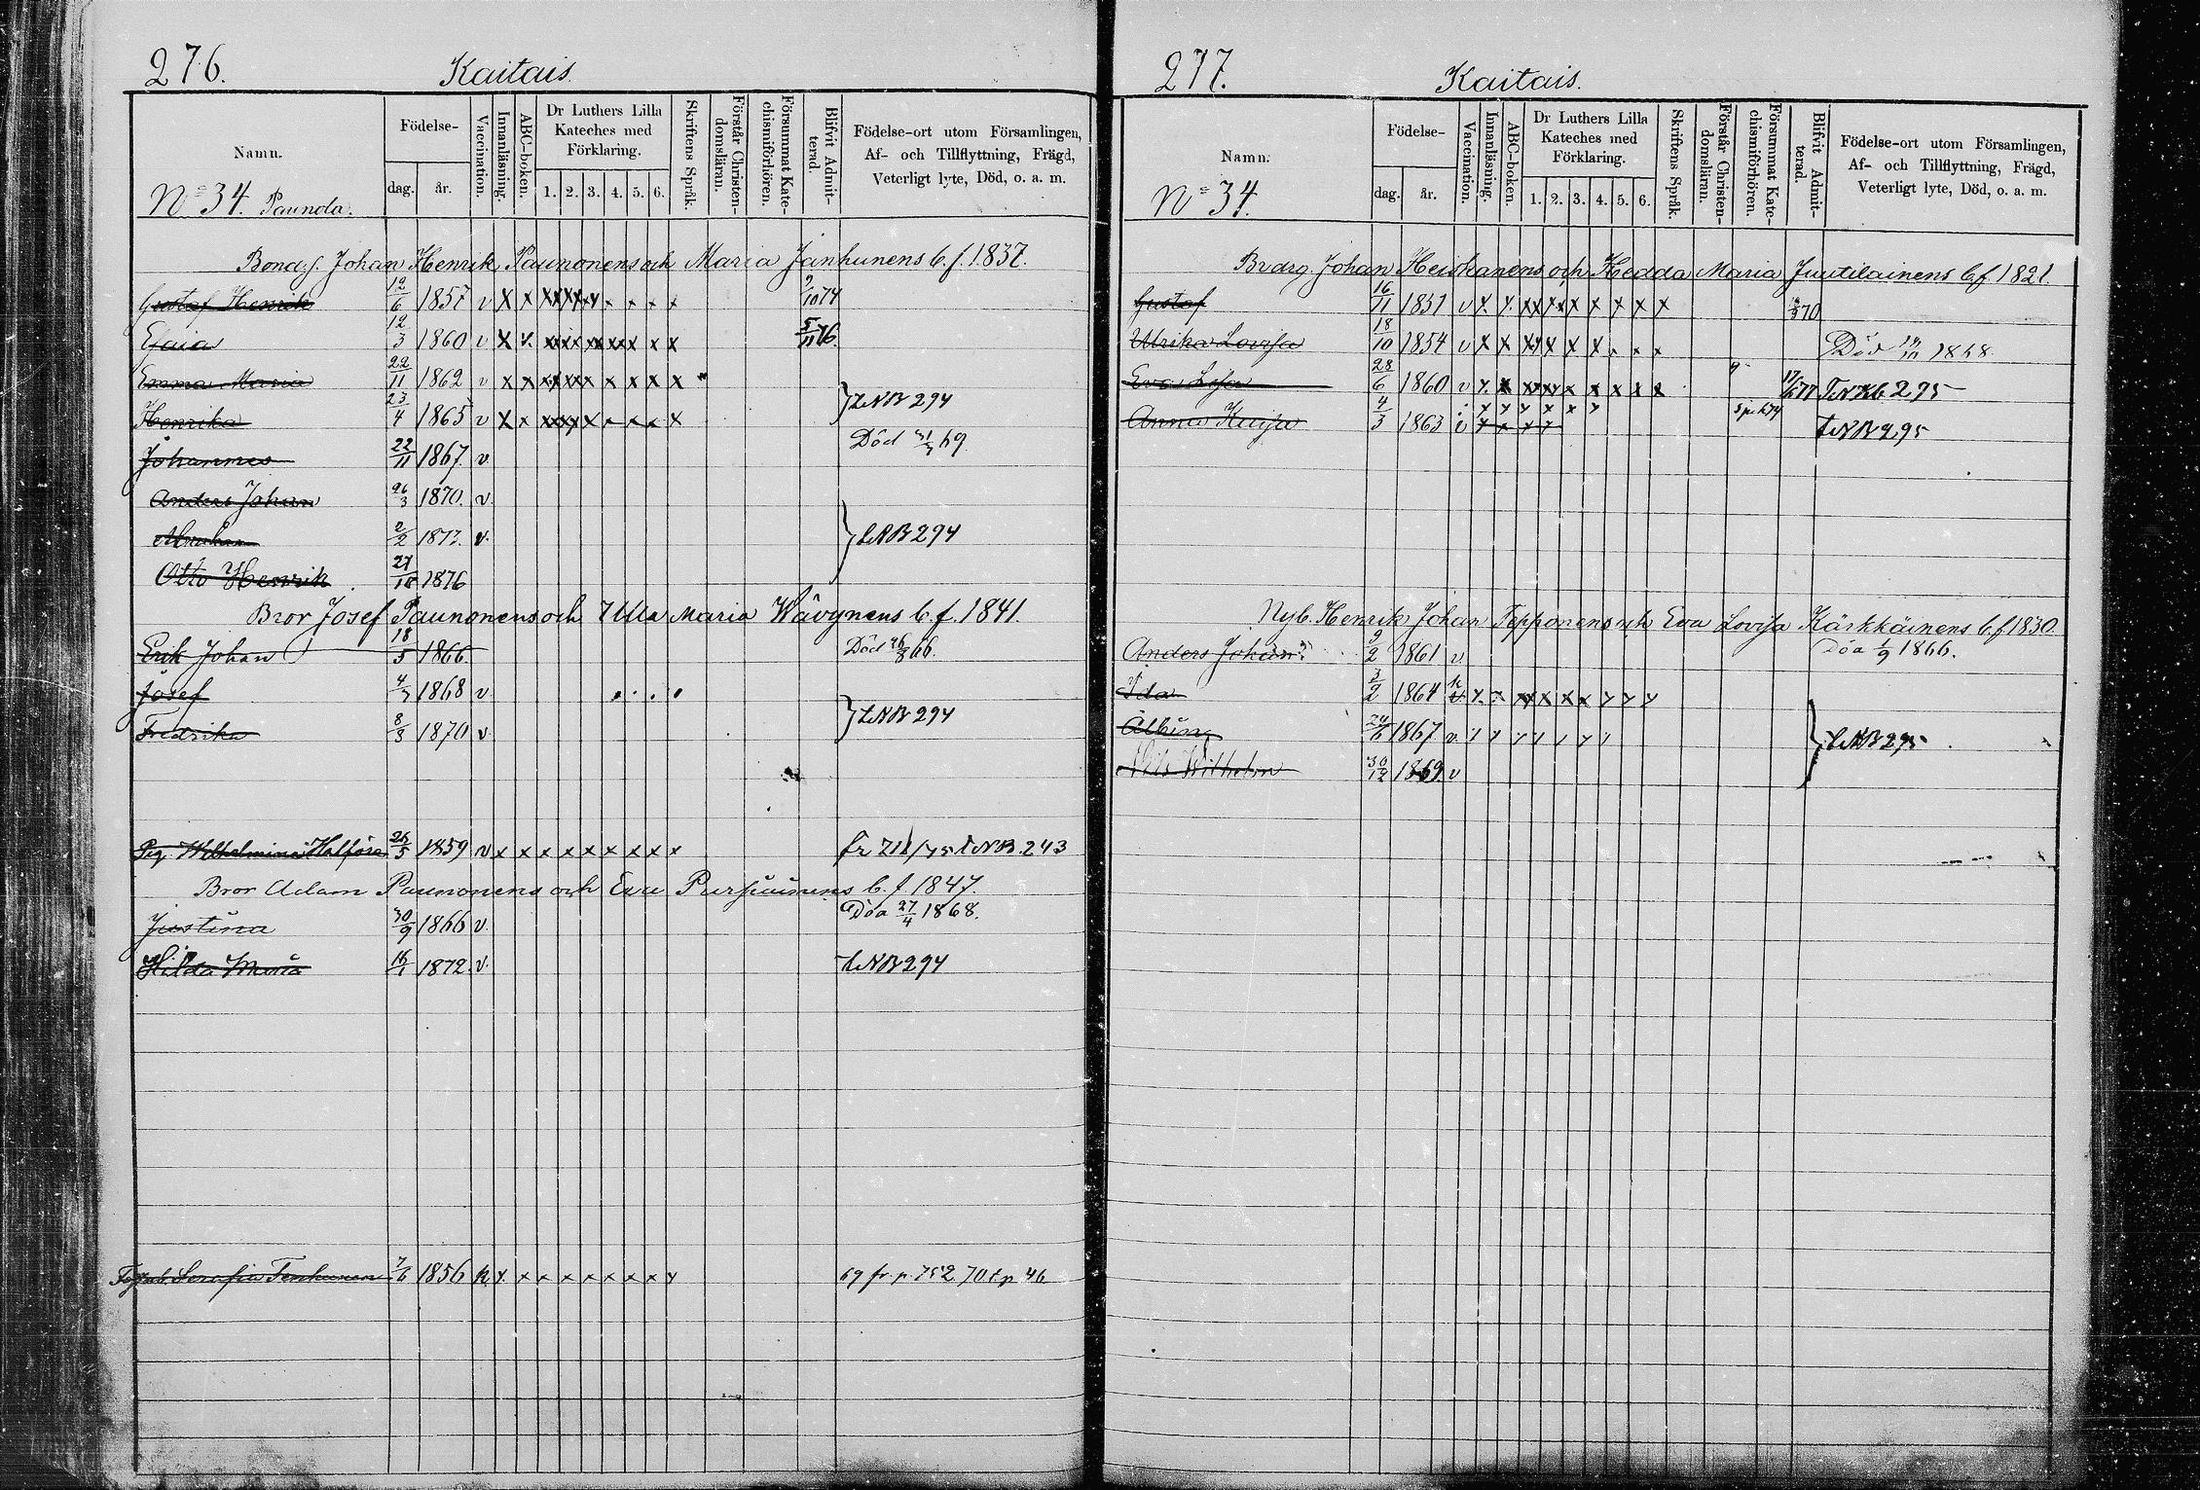 276. Kaitais.
Namn.
Födelse-
dag. år.
Vaccination.
Innanläsning.
ABC-boken.
Dr Luthers Lilla Kateches med Förklaring.
1. 2. 3. 4. 5. 6.
Skriftens Språk.
Förstår Christen-domsläran.
Försummat Kate-chismiförhören.
Blifvit Admit-terad.
Födelse-ort utom Församlingen,
Af- och Tillflyttning, Frägd,
Veterligt lyte, Död, o. a. m.
No 34. Paunola.
Bond.s. Johan Henrik Paunonens och Maria Janhunens b. f. 1837.
Gustaf Henrik 12/6 1857 v x x x x x x x x x x 9/10 74
Esaia 12/3 1860 v x x x x x x x x x 5/11 76.
Emma Maria 22/11 1862 v x x x x x x x x x
Henrika 23/4 1865 v x x x x x x x x x LNB 294
Johannes 22/11 1867. v. Död 31/3 69
Anders Johan 26/3 1870. v.
Abraham 2/2 1873. v. LNB 294
Otto Henrik 27/10 1876
Bror Josef Paunonens och Ulla Maria Käyhönens b. f. 1841.
Erik Johan 18/5 1866 Död 26/8 66.
Josef 4/3 1868 v
Fredrika 8/3 1870 v LNB 294
Pig. Wilhelmina Halfors 26/5 1859 v x x x x x x x x x fr 211/75 LNB. 243
Bror Adam Paunonens och Eva Pursiainens b. f 1847.
Justina 30/9 1866 v. Död 27/4 1868.
Hilda Maria 16/1 1872. v. LNB 294
Serafia Tenhunen 7/6 1856 x x x x x x x x 69 fr. p. 752 70 t p 46
277. Kaitais.
Namn.
Födelse-
dag. år.
Vaccination.
Innanläsning.
ABC-boken.
Dr Luthers Lilla Kateches med Förklaring.
1. 2. 3. 4. 5. 6.
Skriftens Språk.
Förstår Christen-domsläran.
Försummat Kate-chismiförhören.
Blifvit Admit-terad.
Födelse-ort utom Församlingen,
Af- och Tillflyttning, Frägd,
Veterligt lyte, Död, o. a. m.
No 34.
Johan Heiskanens och Hedda Maria Juutilainens b. f 1821.
Gustaf 16/11 1851 v x x x x x x x x x x 70
Ulrika Lovisa 18/10 1854 v x x x x x x x x x Död 1868
Eva Lisa 28/6 1860 v x x x x x x x x x 77 LNB 295
Anna Kaisa 4/3 1863 v x x x x LNB 295
Nyb. Henrik Johan Tepponens och Eva Lovisa Kärkkäinens b. f 1830.
Anders Johan 9/2 1861 v. Död 1/9 1866.
Ida 3/2 1864 x x x x x x x x x
Albin 24/6 1867 v x x x x x x x LNB 295
Nils Wilhelm 30/12 1869. v